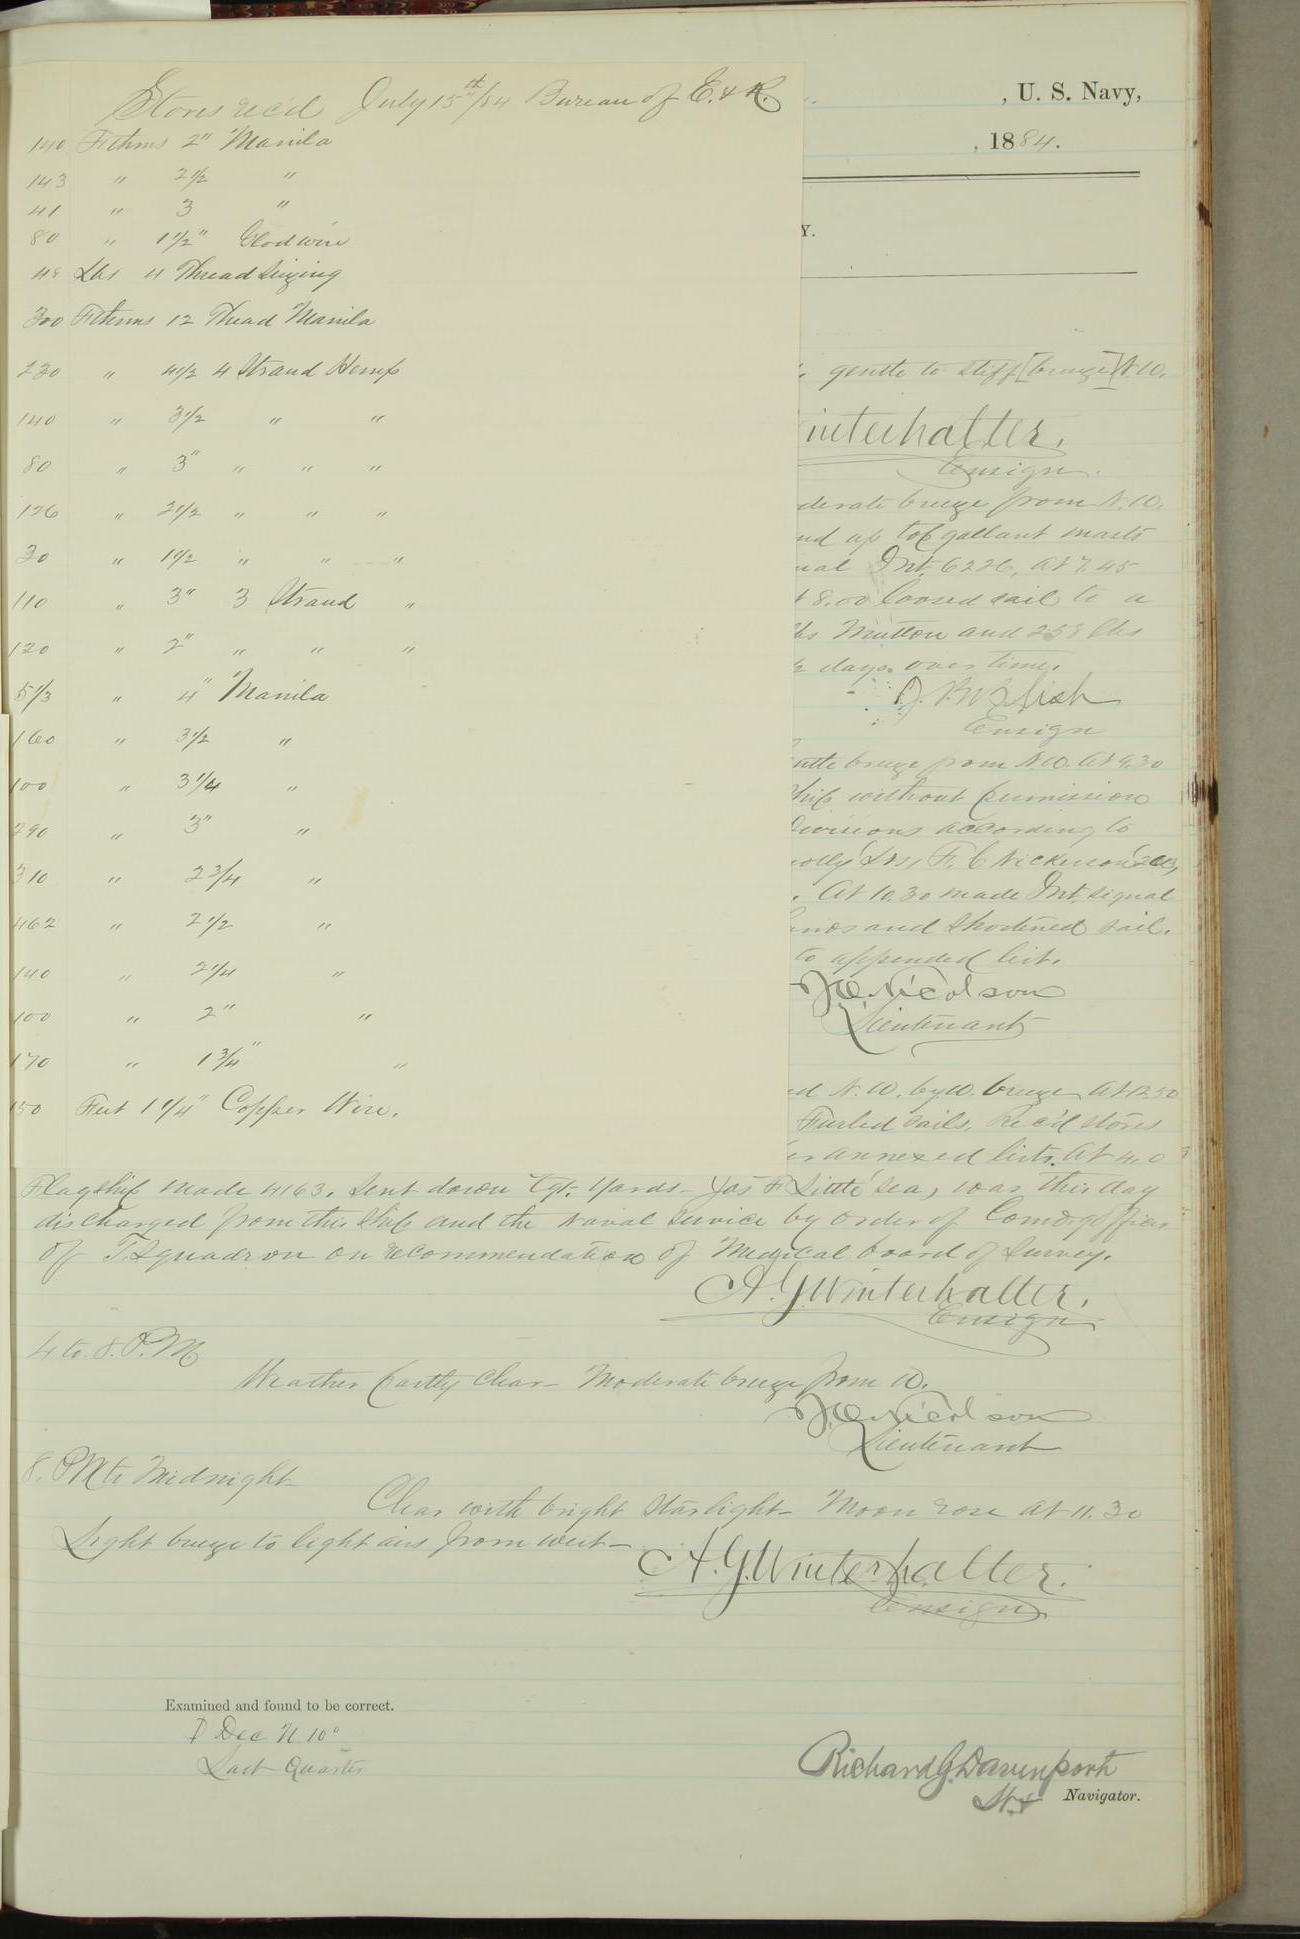 Stores rec'd July 15th/84 Bureau of E. & R.
140 Fthms 2" Manila
143 " 2 1/2 "
41 " 3 "
80 " 1 1/2"
48 Lbs 4 Thread Seizing
300 Fthms 12 Thead Manila
230 " 4 1/2 4 Strand Hemp
140 " 3 1/2 " "
80 " 3" " " "
126 " 2 1/2 " " "
30 " 1 1/2 " " "
110 " 3" 3 Strand "
120 " 2" " " "
5 1/3 " 4" Manila
160 " 3 1/2 "
100 " 3 1/4 "
290 " 3" "
310 " 2 3/4 "
462 " 2 1/2 "
140 " 2 1/4 "
100 " 2" "
170 " 1 3/4" "
150 Feet 1 1/4" Copper Wire.
, U. S. Navy,
, 1884.
Y.
gentle to stiff [breeze] N.W.
interhalter.
Ensign.
derate breeze from N.W.
nd up top gallant masts
nal Int. 6226, at 7.45
t 8.00 loosed sail to a
lbs Mutton and 258 lbs
days over time.
Ensign
ntle breeze from N.W. At 9.30
ship without permission
Divisions according to
F. C Nickerson
. At 10.30 made Int. signal
and shortened sail.
to appended list.
Nicolson
Lieutenant
N.W. by W. breeze At 12.50
Furled sails. Rec'd stores
annexed lists. At 4.0
Flagship made 4163. Sent down Tgt. Yards_ Jas F Little Sea, was this day
discharged from this Ship and the Naval Service by order of Comd'g Officer
of T. Squadron on recommendation of Medical board of Survey.
A. G. Winterhalter.
Ensign
4 to 8. P.M
Weather partly Clear_ Moderate breeze from W.
Nicolson
Lieutenant
8. PM to Midnight_
Clear with bright Starlight_ Moon rose at 11.30
Light breeze to light airs from West_
A. G. Winterhalter.
Ensign
Examined and found to be correct.
Dec N. 10°
Last Quarter
Richard G. Davenport
Navigator.